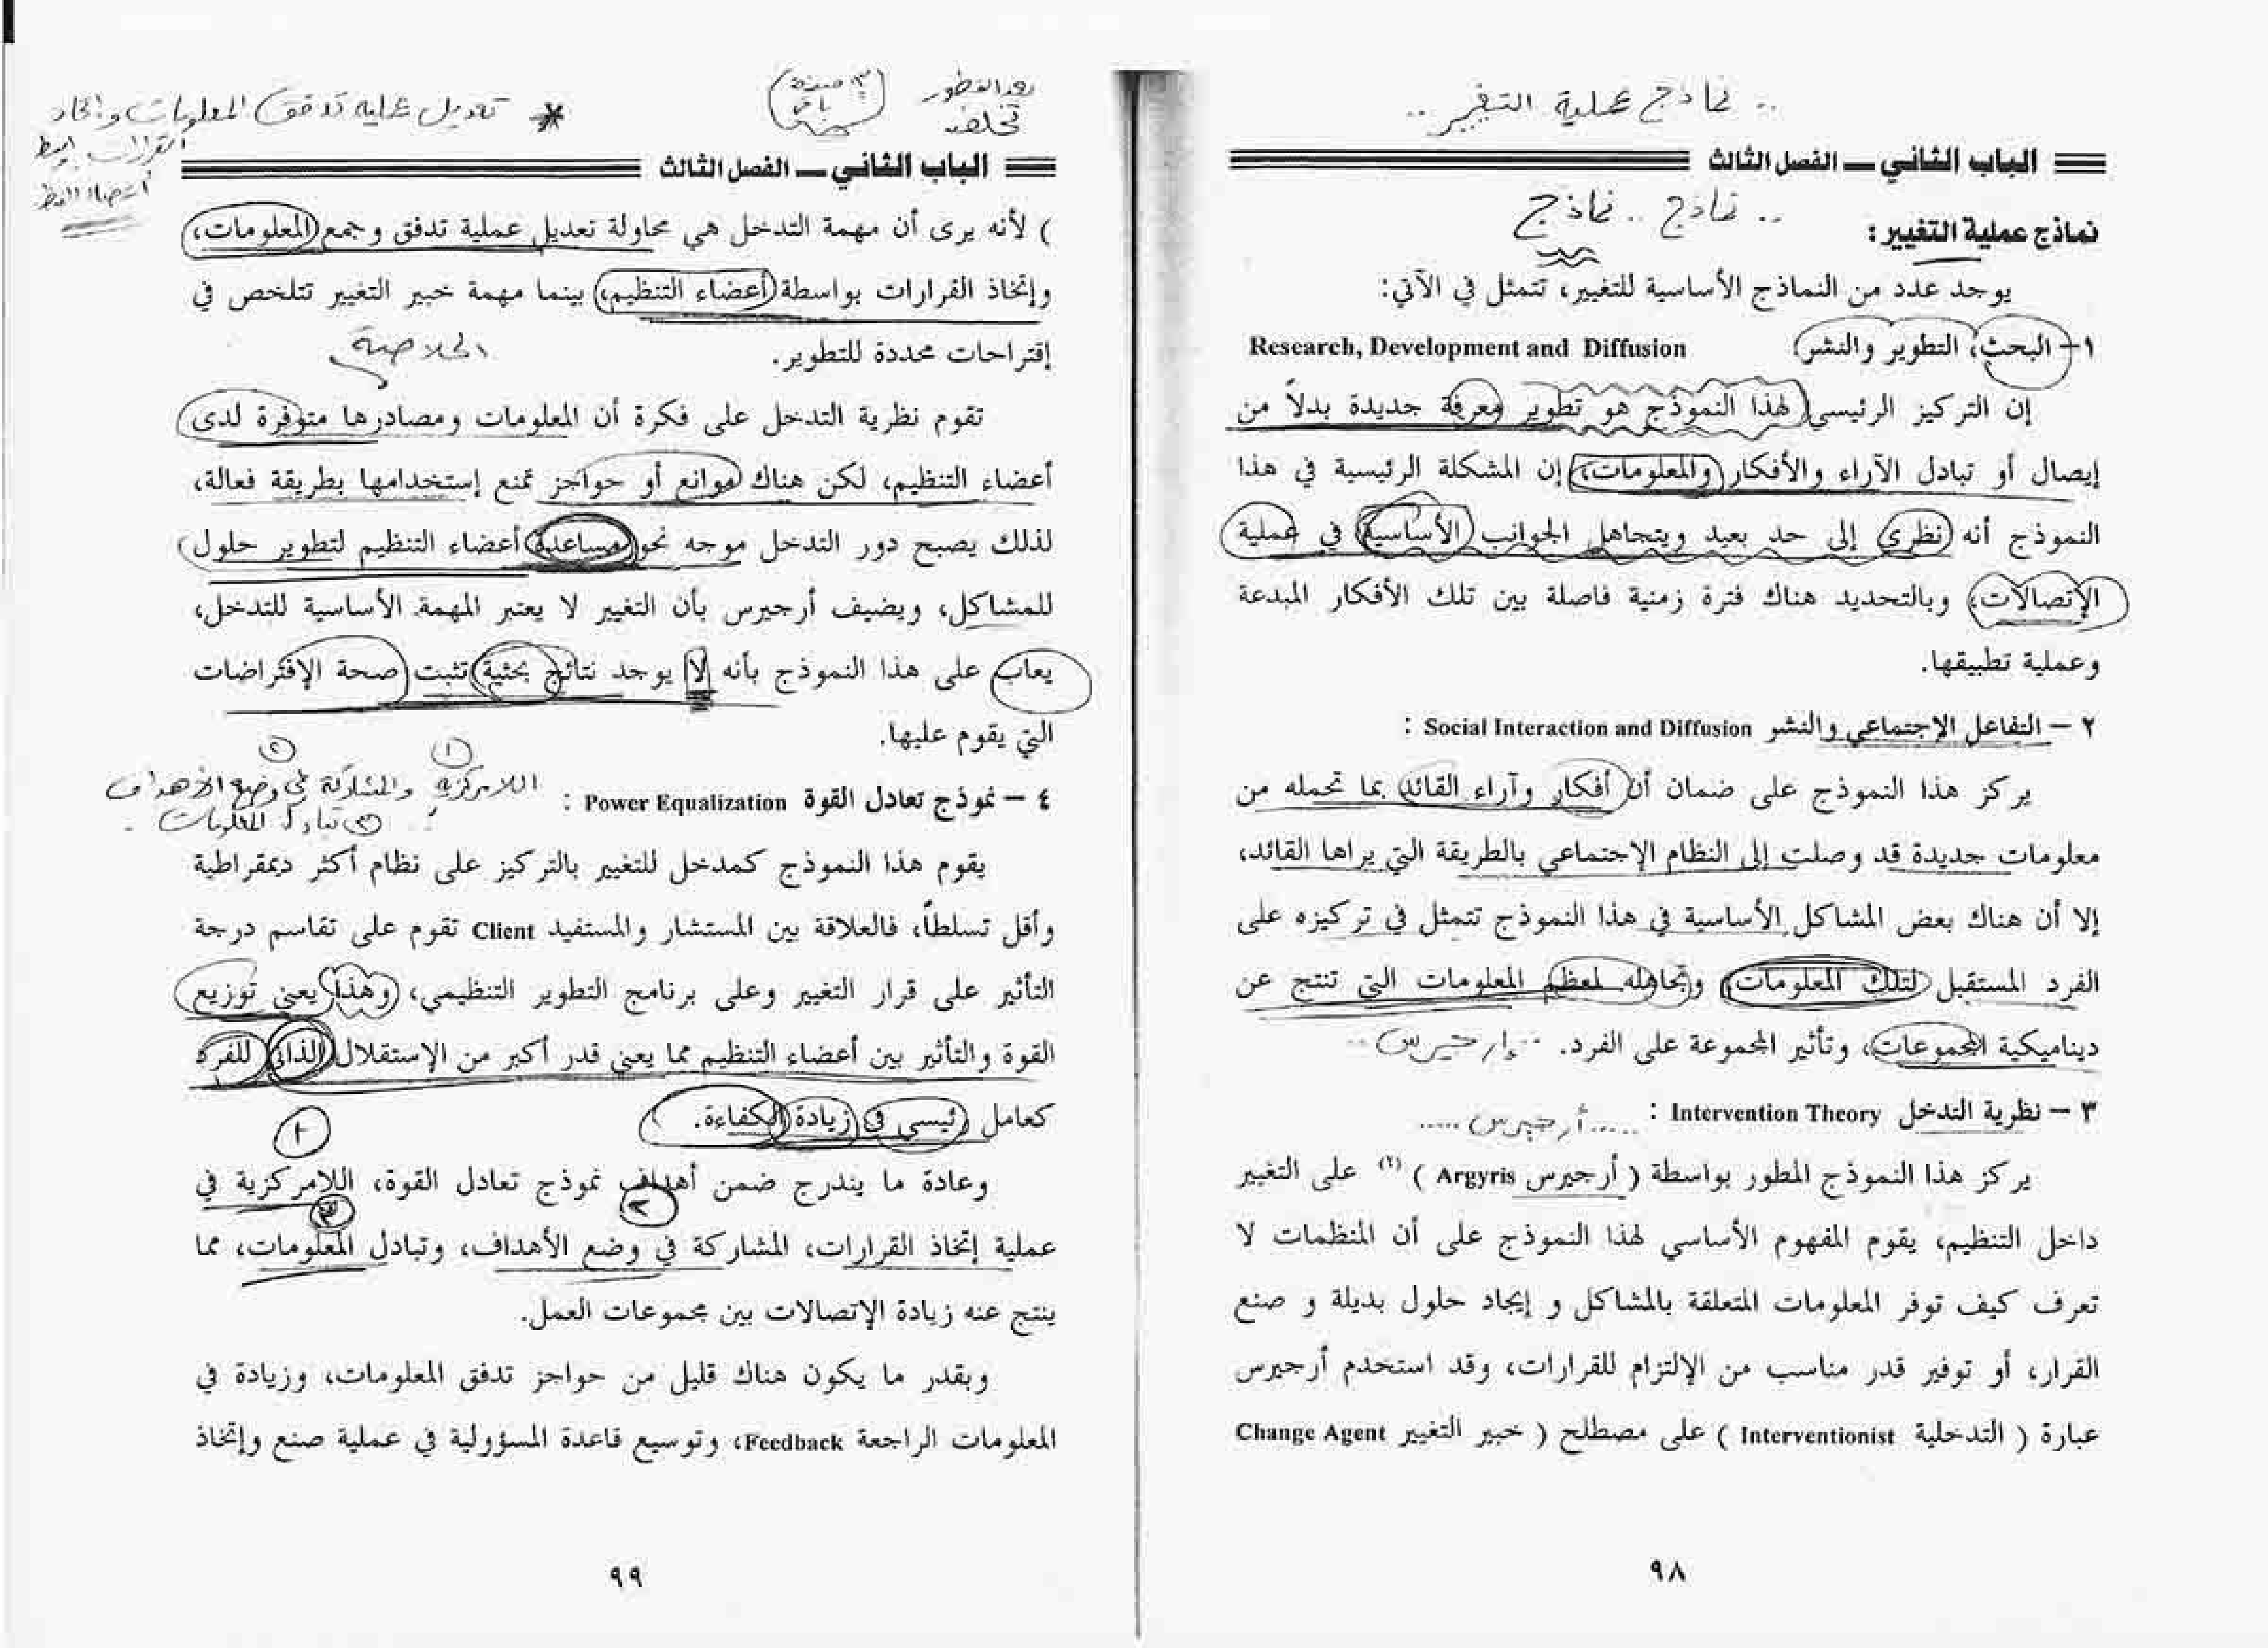 .. نماذج عملية التغيير ..
الباب الثاني — الفصل الثالث
نماذج عملية التغيير: .. نماذج .. نماذج
يوجد عدد من النماذج الأساسية للتغيير، تتمثل في الآتي:
١ – البحث، التطوير والنشر Research, Development and Diffusion
إن التركيز الرئيسي لهذا النموذج هو تطوير معرفة جديدة بدلاً من
إيصال أو تبادل الآراء والأفكار والمعلومات، إن المشكلة الرئيسية في هذا
النموذج أنه نظري إلى حد بعيد ويتجاهل الجوانب الأساسية في عملية
الإتصالات، وبالتحديد هناك فترة زمنية فاصلة بين تلك الأفكار المبدعة
وعملية تطبيقها.
٢ – التفاعل الإجتماعي والنشر Social Interaction and Diffusion :
يركز هذا النموذج على ضمان أن أفكار وآراء القائد بما تحمله من
معلومات جديدة قد وصلت إلى النظام الإجتماعي بالطريقة التي يراها القائد،
إلا أن هناك بعض المشاكل الأساسية في هذا النموذج تتمثل في تركيزه على
الفرد المستقبل لتلك المعلومات وتجاهله لمعظم المعلومات التي تنتج عن
ديناميكية المجموعات، وتأثير المجموعة على الفرد. .. أرجيرس ..
٣ – نظرية التدخل Intervention Theory : ..... أرجيرس .....
يركز هذا النموذج المطور بواسطة ( أرجيرس Argyris ) (٢) على التغيير
داخل التنظيم، يقوم المفهوم الأساسي لهذا النموذج على أن المنظمات لا
تعرف كيف توفر المعلومات المتعلقة بالمشاكل و إيجاد حلول بديلة و صنع
القرار، أو توفير قدر مناسب من الإلتزام للقرارات، وقد استخدم أرجيرس
عبارة ( التدخلية Interventionist ) على مصطلح ( خبير التغيير Change Agent
٩٨
* تعديل عملية تدفق المعلومات واتخاذ
القرارات
الباب الثاني — الفصل الثالث
) لأنه يرى أن مهمة التدخل هي محاولة تعديل عملية تدفق وجمع المعلومات،
وإتخاذ القرارات بواسطة أعضاء التنظيم، بينما مهمة خبير التغيير تتلخص في
إقتراحات محددة للتطوير. الخلاصة
تقوم نظرية التدخل على فكرة أن المعلومات ومصادرها متوفرة لدى
أعضاء التنظيم، لكن هناك موانع أو حواجز تمنع إستخدامها بطريقة فعالة،
لذلك يصبح دور التدخل موجه نحو مساعدة أعضاء التنظيم لتطوير حلول
للمشاكل، ويضيف أرجيرس بأن التغيير لا يعتبر المهمة الأساسية للتدخل،
يعاب على هذا النموذج بأنه لا يوجد نتائج بحثية تثبت صحة الإفتراضات
التي يقوم عليها.
٤ – نموذج تعادل القوة Power Equalization : ① اللامركزية ② والمشاركة في وضع الأهداف
③ تبادل المعلومات .
يقوم هذا النموذج كمدخل للتغيير بالتركيز على نظام أكثر ديمقراطية
وأقل تسلطاً، فالعلاقة بين المستشار والمستفيد Client تقوم على تقاسم درجة
التأثير على قرار التغيير وعلى برنامج التطوير التنظيمي، وهذا يعني توزيع
القوة والتأثير بين أعضاء التنظيم مما يعني قدر أكبر من الإستقلال الذاتي للفرد
كعامل رئيسي في زيادة الكفاءة.
وعادة ما يندرج ضمن أهداف نموذج تعادل القوة، اللامركزية في
عملية إتخاذ القرارات، المشاركة في وضع الأهداف، وتبادل المعلومات، مما
ينتج عنه زيادة الإتصالات بين مجموعات العمل.
وبقدر ما يكون هناك قليل من حواجز تدفق المعلومات، وزيادة في
المعلومات الراجعة Feedback، وتوسيع قاعدة المسؤولية في عملية صنع وإتخاذ
٩٩